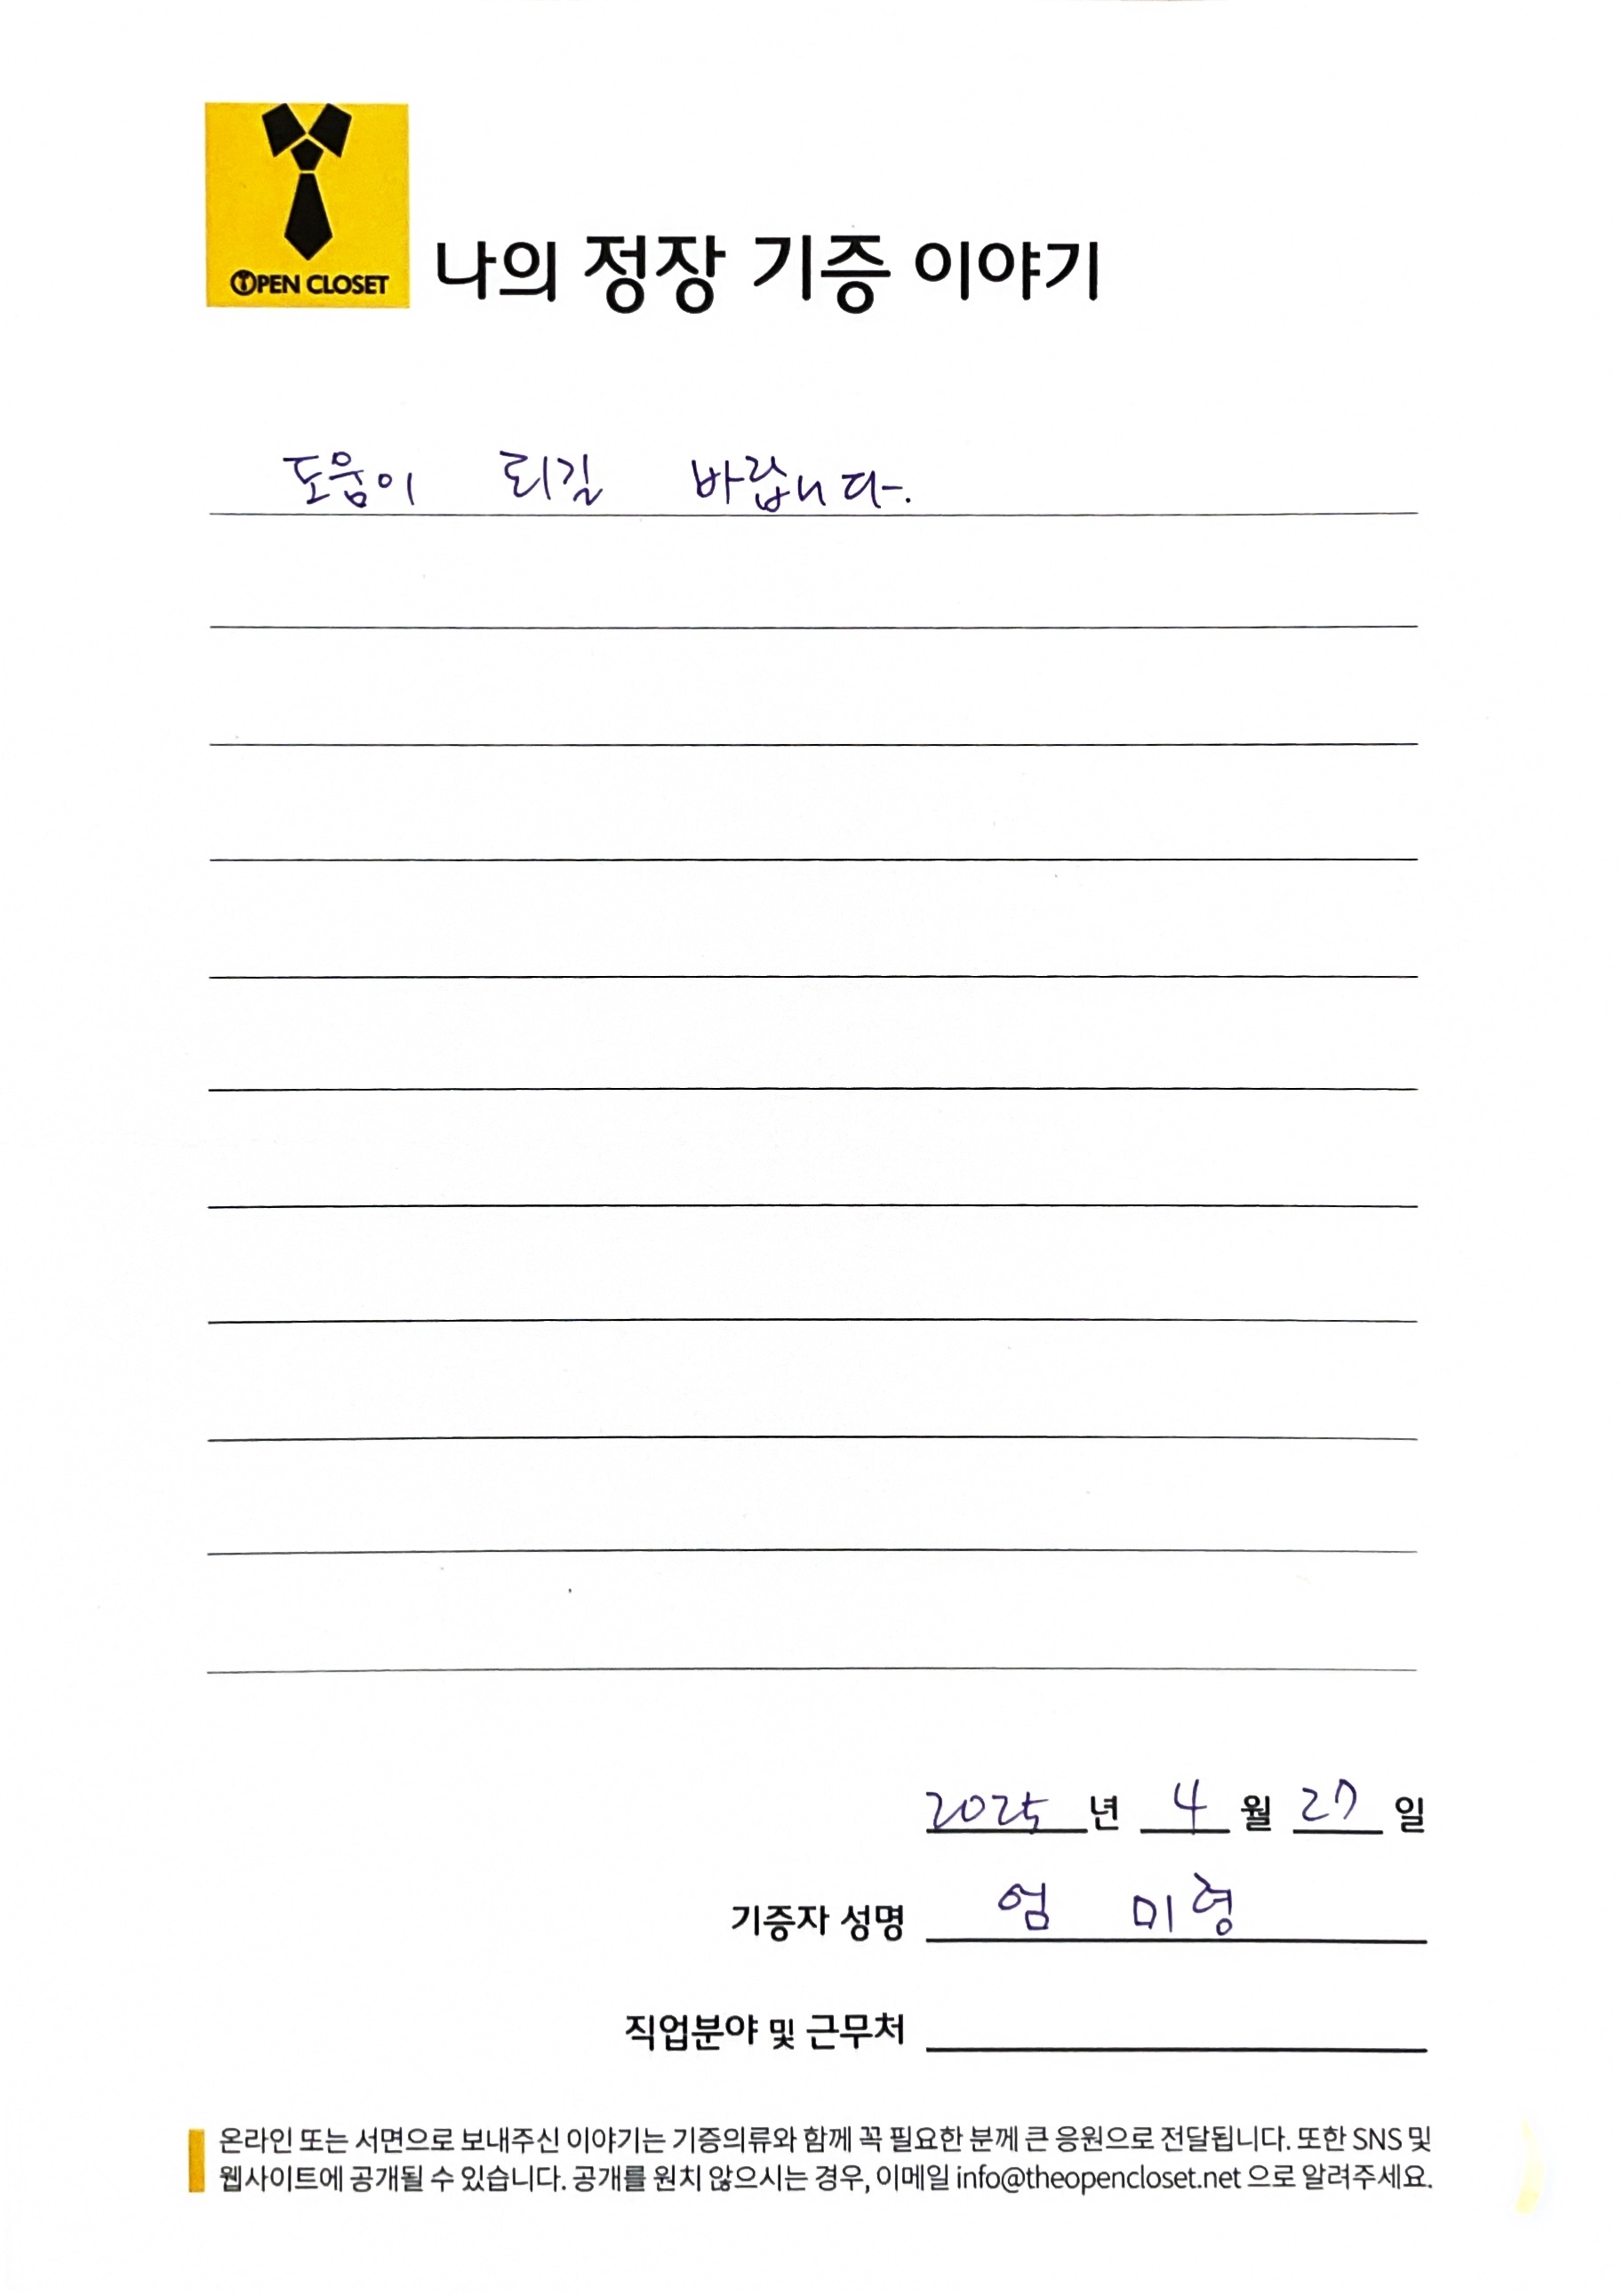 OPEN CLOSET
나의 정장 기증 이야기
도움이 되길 바랍니다.
2025 년 4 월 27 일
기증자 성명 엄 미형
직업분야 및 근무처
온라인 또는 서면으로 보내주신 이야기는 기증의류와 함께 꼭 필요한 분께 큰 응원으로 전달됩니다. 또한 SNS 및
웹사이트에 공개될 수 있습니다. 공개를 원치 않으시는 경우, 이메일 info@theopencloset.net 으로 알려주세요.